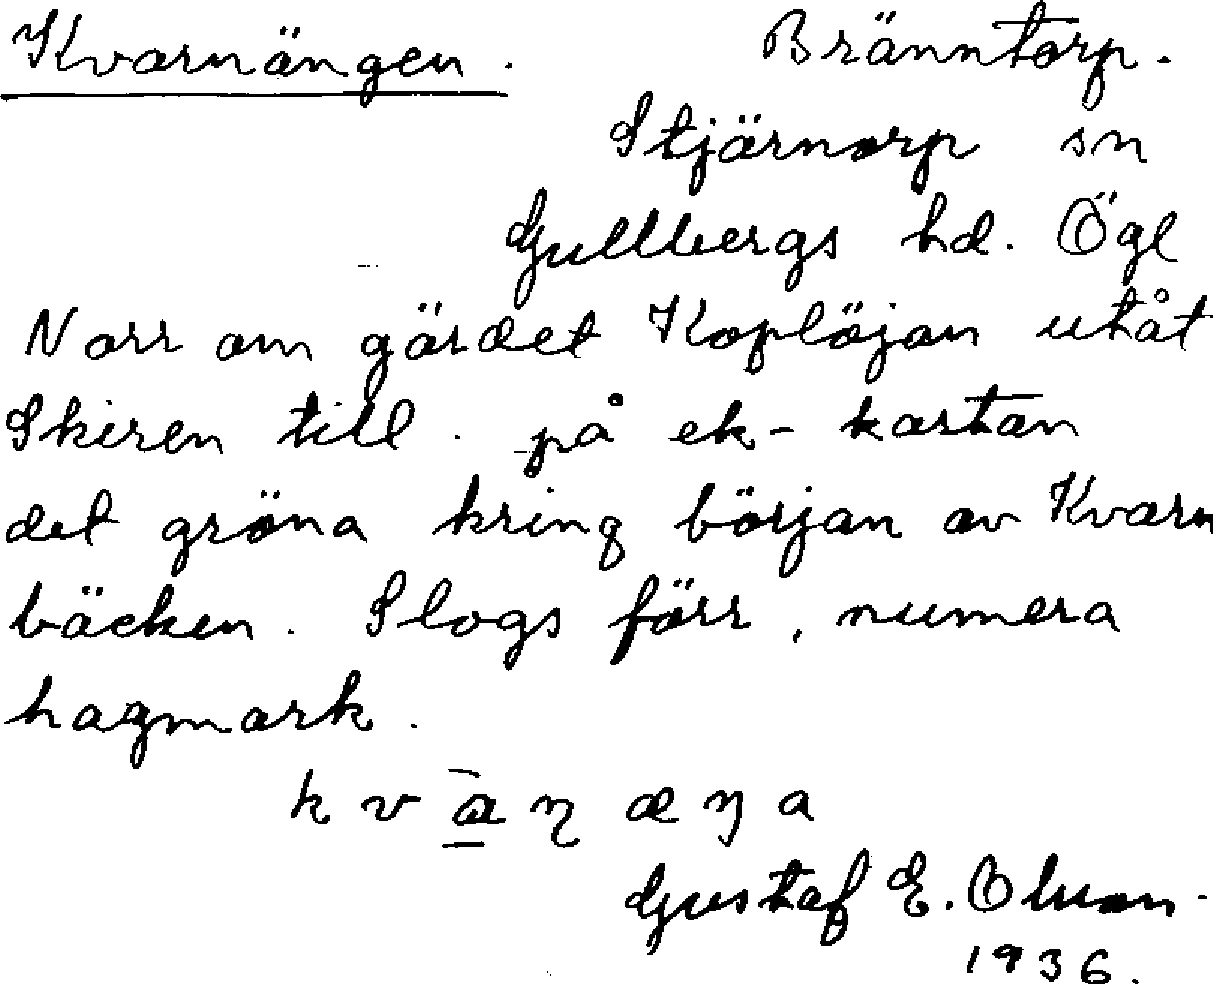 Kvarnängen. Bränntorp.
Stjärnorp sn
Gullbergs hd. Ögl
Norr om gärdet Koplöjan utåt
Skiren till. på ek-kartan
det gröna kring början av Kvarn
bäcken. Slogs förr, numera
hagmark.
kvàɳæŋa
Gustaf E. Olsson.
1936.